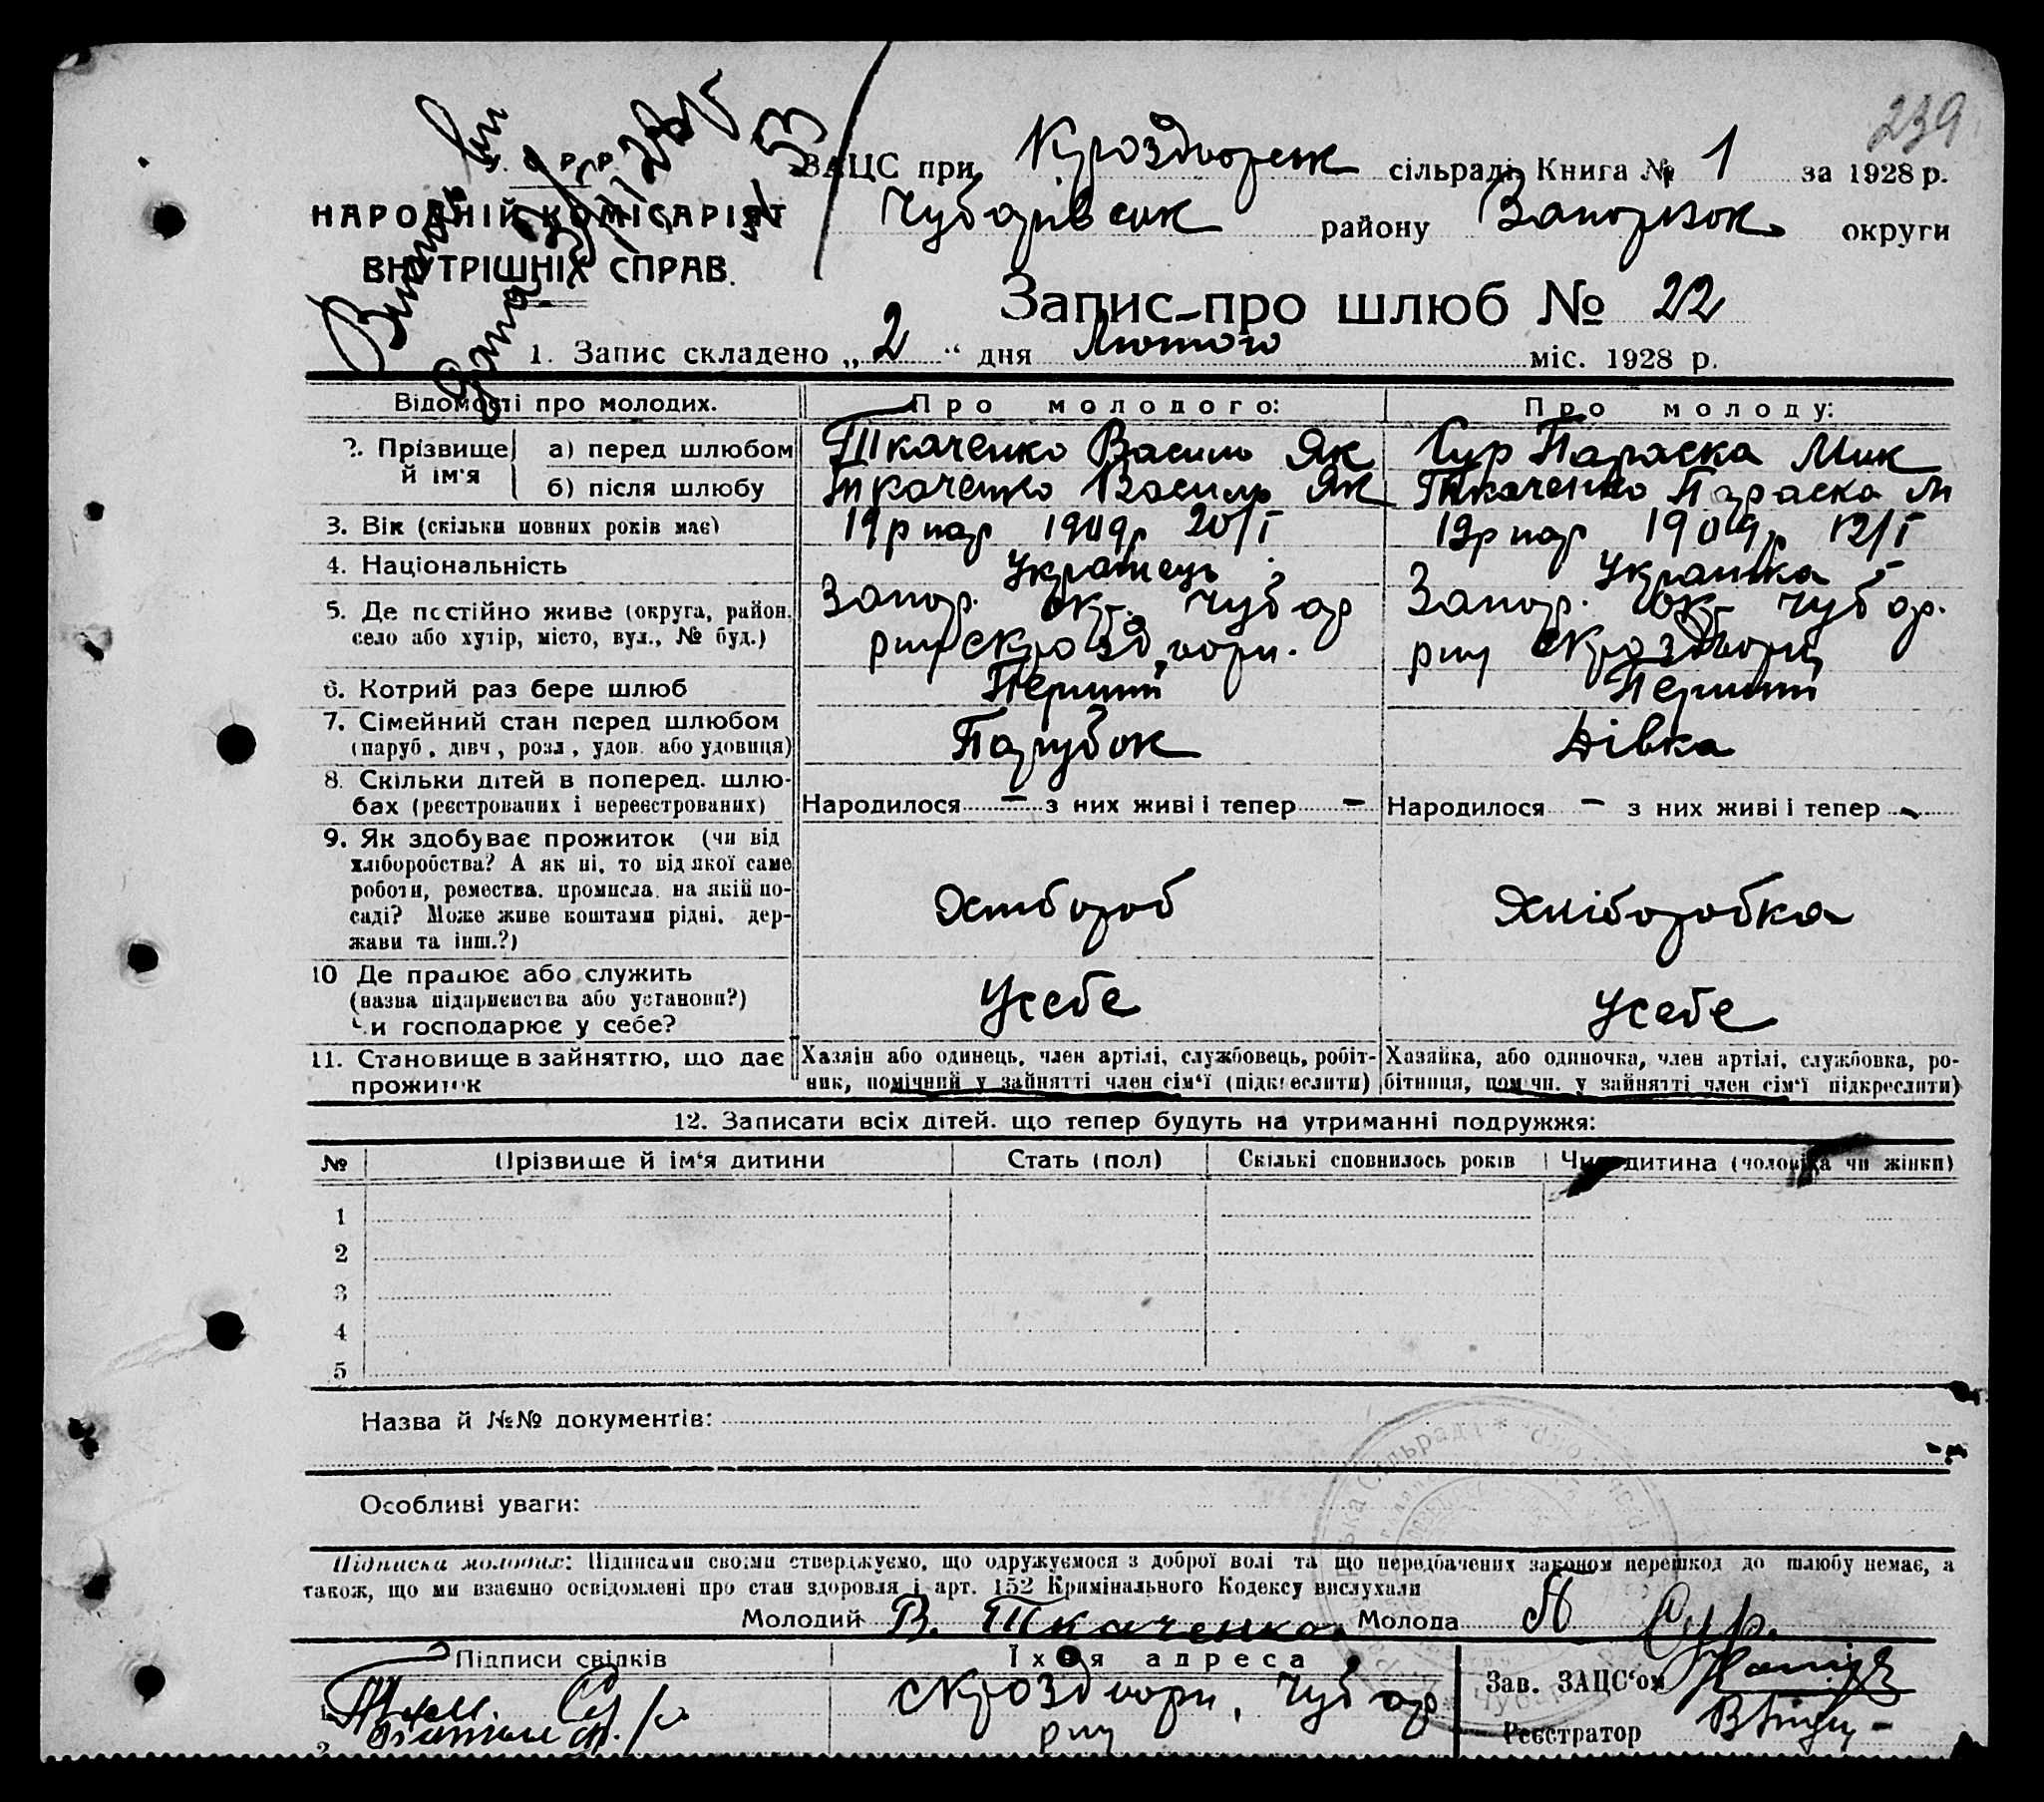 239
ЗАЦС при Кроздворск сільраді, Книга № 1 за 1928 р.
Р Р
НАРОДНІЙ КОМІСАРІЯТ
Чубарівськ району Запоризок. округи
ВНУТРІШНІХ СПРАВ.
Запис про шлюб № 22
1. Запис складено „2“ дня Лютого міс. 1928 р.
Відомості про молодих. Про молодого: Про молоду:
2. Прізвище й ім'я
а) перед шлюбом Ткаченко Василь Як Сур Параска Мик
б) після шлюбу Ткаченко Василь Як Ткаченко Параска М
3. Вік (скільки повних років має) 19р нар 1909р 20/I 19р нар 1909р 12/I
4. Національність Українець Українка
5. Де постійно живе (округа, район, Запор. окр. Чубар Запор. окр Чубар.
село або хутір, місто, вул., № буд.)
6. Котрий раз бере шлюб Перший Перший
7. Сімейний стан перед шлюбом Парубок Дівка
(паруб., дівч., розл., удов. або удовиця)
8. Скільки дітей в поперед. шлю-
бах (реєстрованих і нереєстрованих) Народилося – з них живі і тепер – Народилося – з них живі і тепер –
9. Як здобуває прожиток (чи від
хліборобства? А як ні, то від якої саме
роботи, ремества, промисла, на якій по- Хлібороб Хліборобка
саді? Може живе коштами рідні, дер-
жави та інш.?)
10 Де працює або служить
(назва підприємства або установи?) Усебе Усебе
Чи господарює у себе?
11. Становище в зайняттю, що дає Хазяїн або одинець, член артілі, службовець, робіт- Хазяйка, або одиночка, член артілі, службовка, ро-
прожиток ник, помічний у зайнятті член сім'ї (підкреслити) бітниця, помічн. у зайнятті член сім'ї підкреслити)
12. Записати всіх дітей, що тепер будуть на утриманні подружжя:
№ Прізвище й ім'я дитини Стать (пол) Скількі сповнилось років Чия дитина (чоловіка чи жінки)
1
2
3
4
5
Назва й №№ документів:
Особливі уваги:
Підписка молодих: Підписами своїми стверджуємо, що одружуємося з доброї волі та що передбачених законом перешкод до шлюбу немає, а
також, що ми взаємно освідомлені про стан здоровля і арт. 152 Кримінального Кодексу вислухали
Молодий В. Ткаченко Молода П Сур.
Підписи свідків Їхня адреса Зав. ЗАЦС'ом
1
Чубар
2
Реєстратор